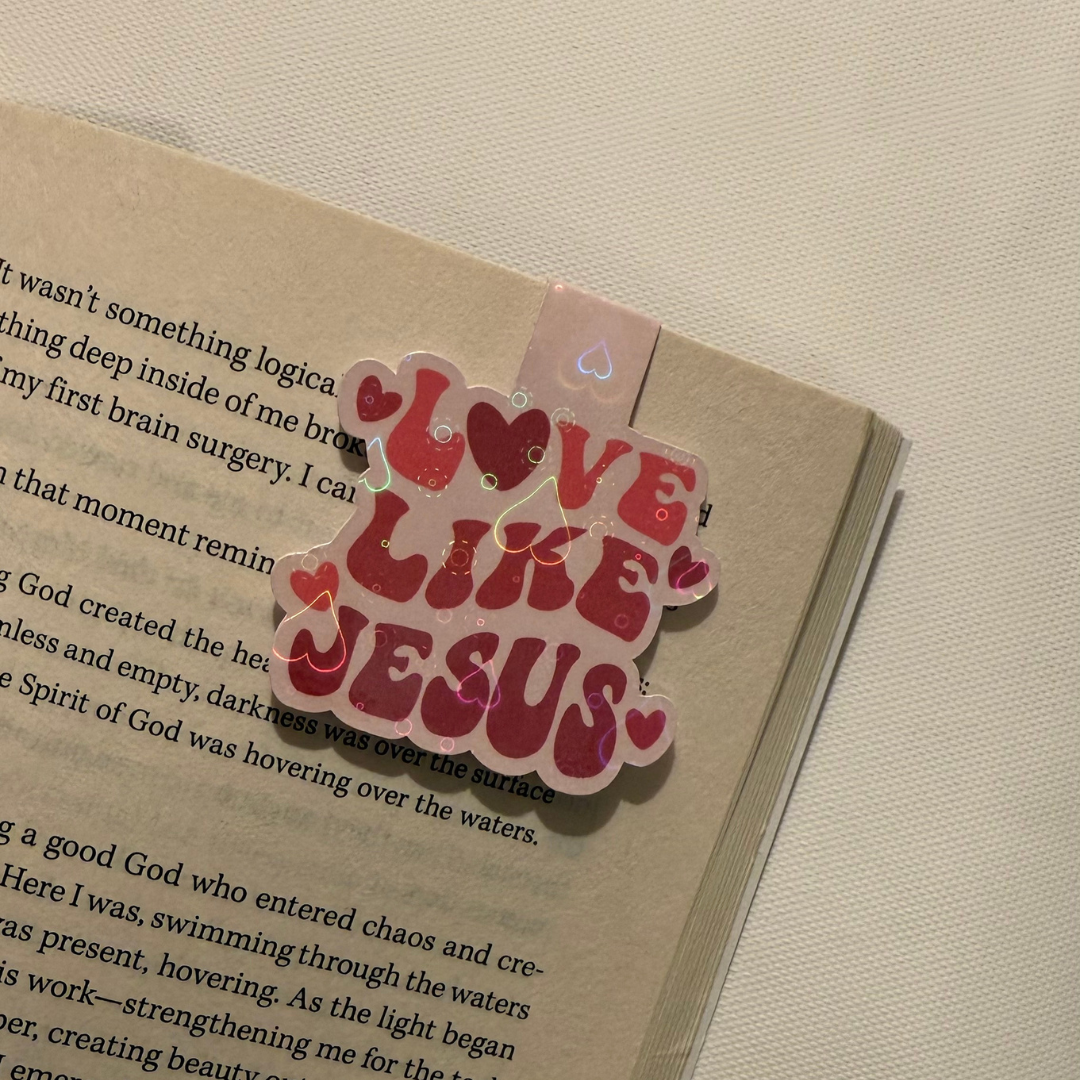 It wasn't something
thing deep inside of me
my first brain surgery. I
that moment
God created the
and empty, darkness was over the surface
Spirit of God was hovering over the waters.
a good God who entered chaos and cre-
Here I was, swimming through the waters
was present, hovering. As the light began
work—strengthening me for the
creating beauty
L VE
LIKE
JESUS